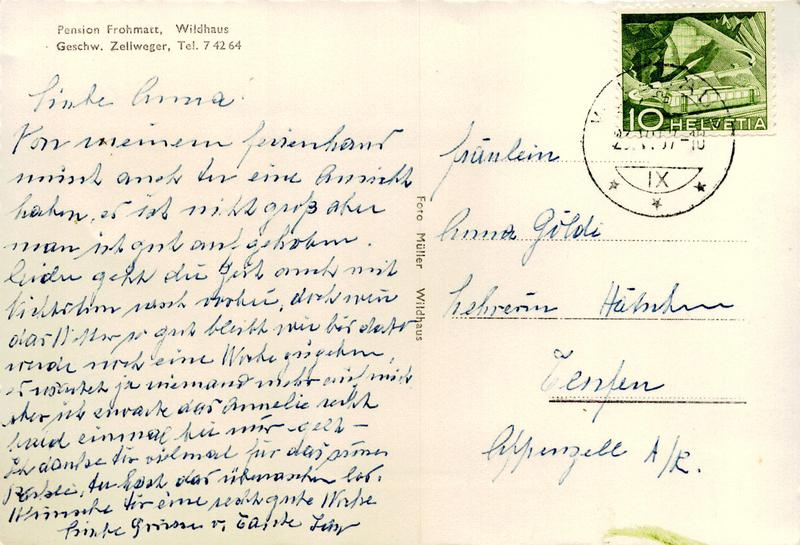 Pension Frohmatt, Wildhaus
Geschw. Zellweger, Tel. 7 42 64
Liebe Anna!
Von meinem ferienhaus
müsst auch Dir eine Ansicht
haben, es ist nicht groß aber
man ist gut aufgehoben.
leider geht die Zeit auch mit
Nichtstun rasch vorbei, doch wen
das Wetter so gut bleibt wie bis dato
werde noch eine Woche zugeben,
es wartet ja niemand mehr auf mich
aber ich erwarte das Annelie recht
bald einmal bei mir gelt –
Ich danke Dir vielmal für das
Wünsche Dir eine recht gute Woche
liebe Grüsse v. Tante
Foto Müller Wildhaus
10 HELVETIA
IX
fräulein
Anna Göldi
Lehrerin
Teufen
Appenzell A/R.